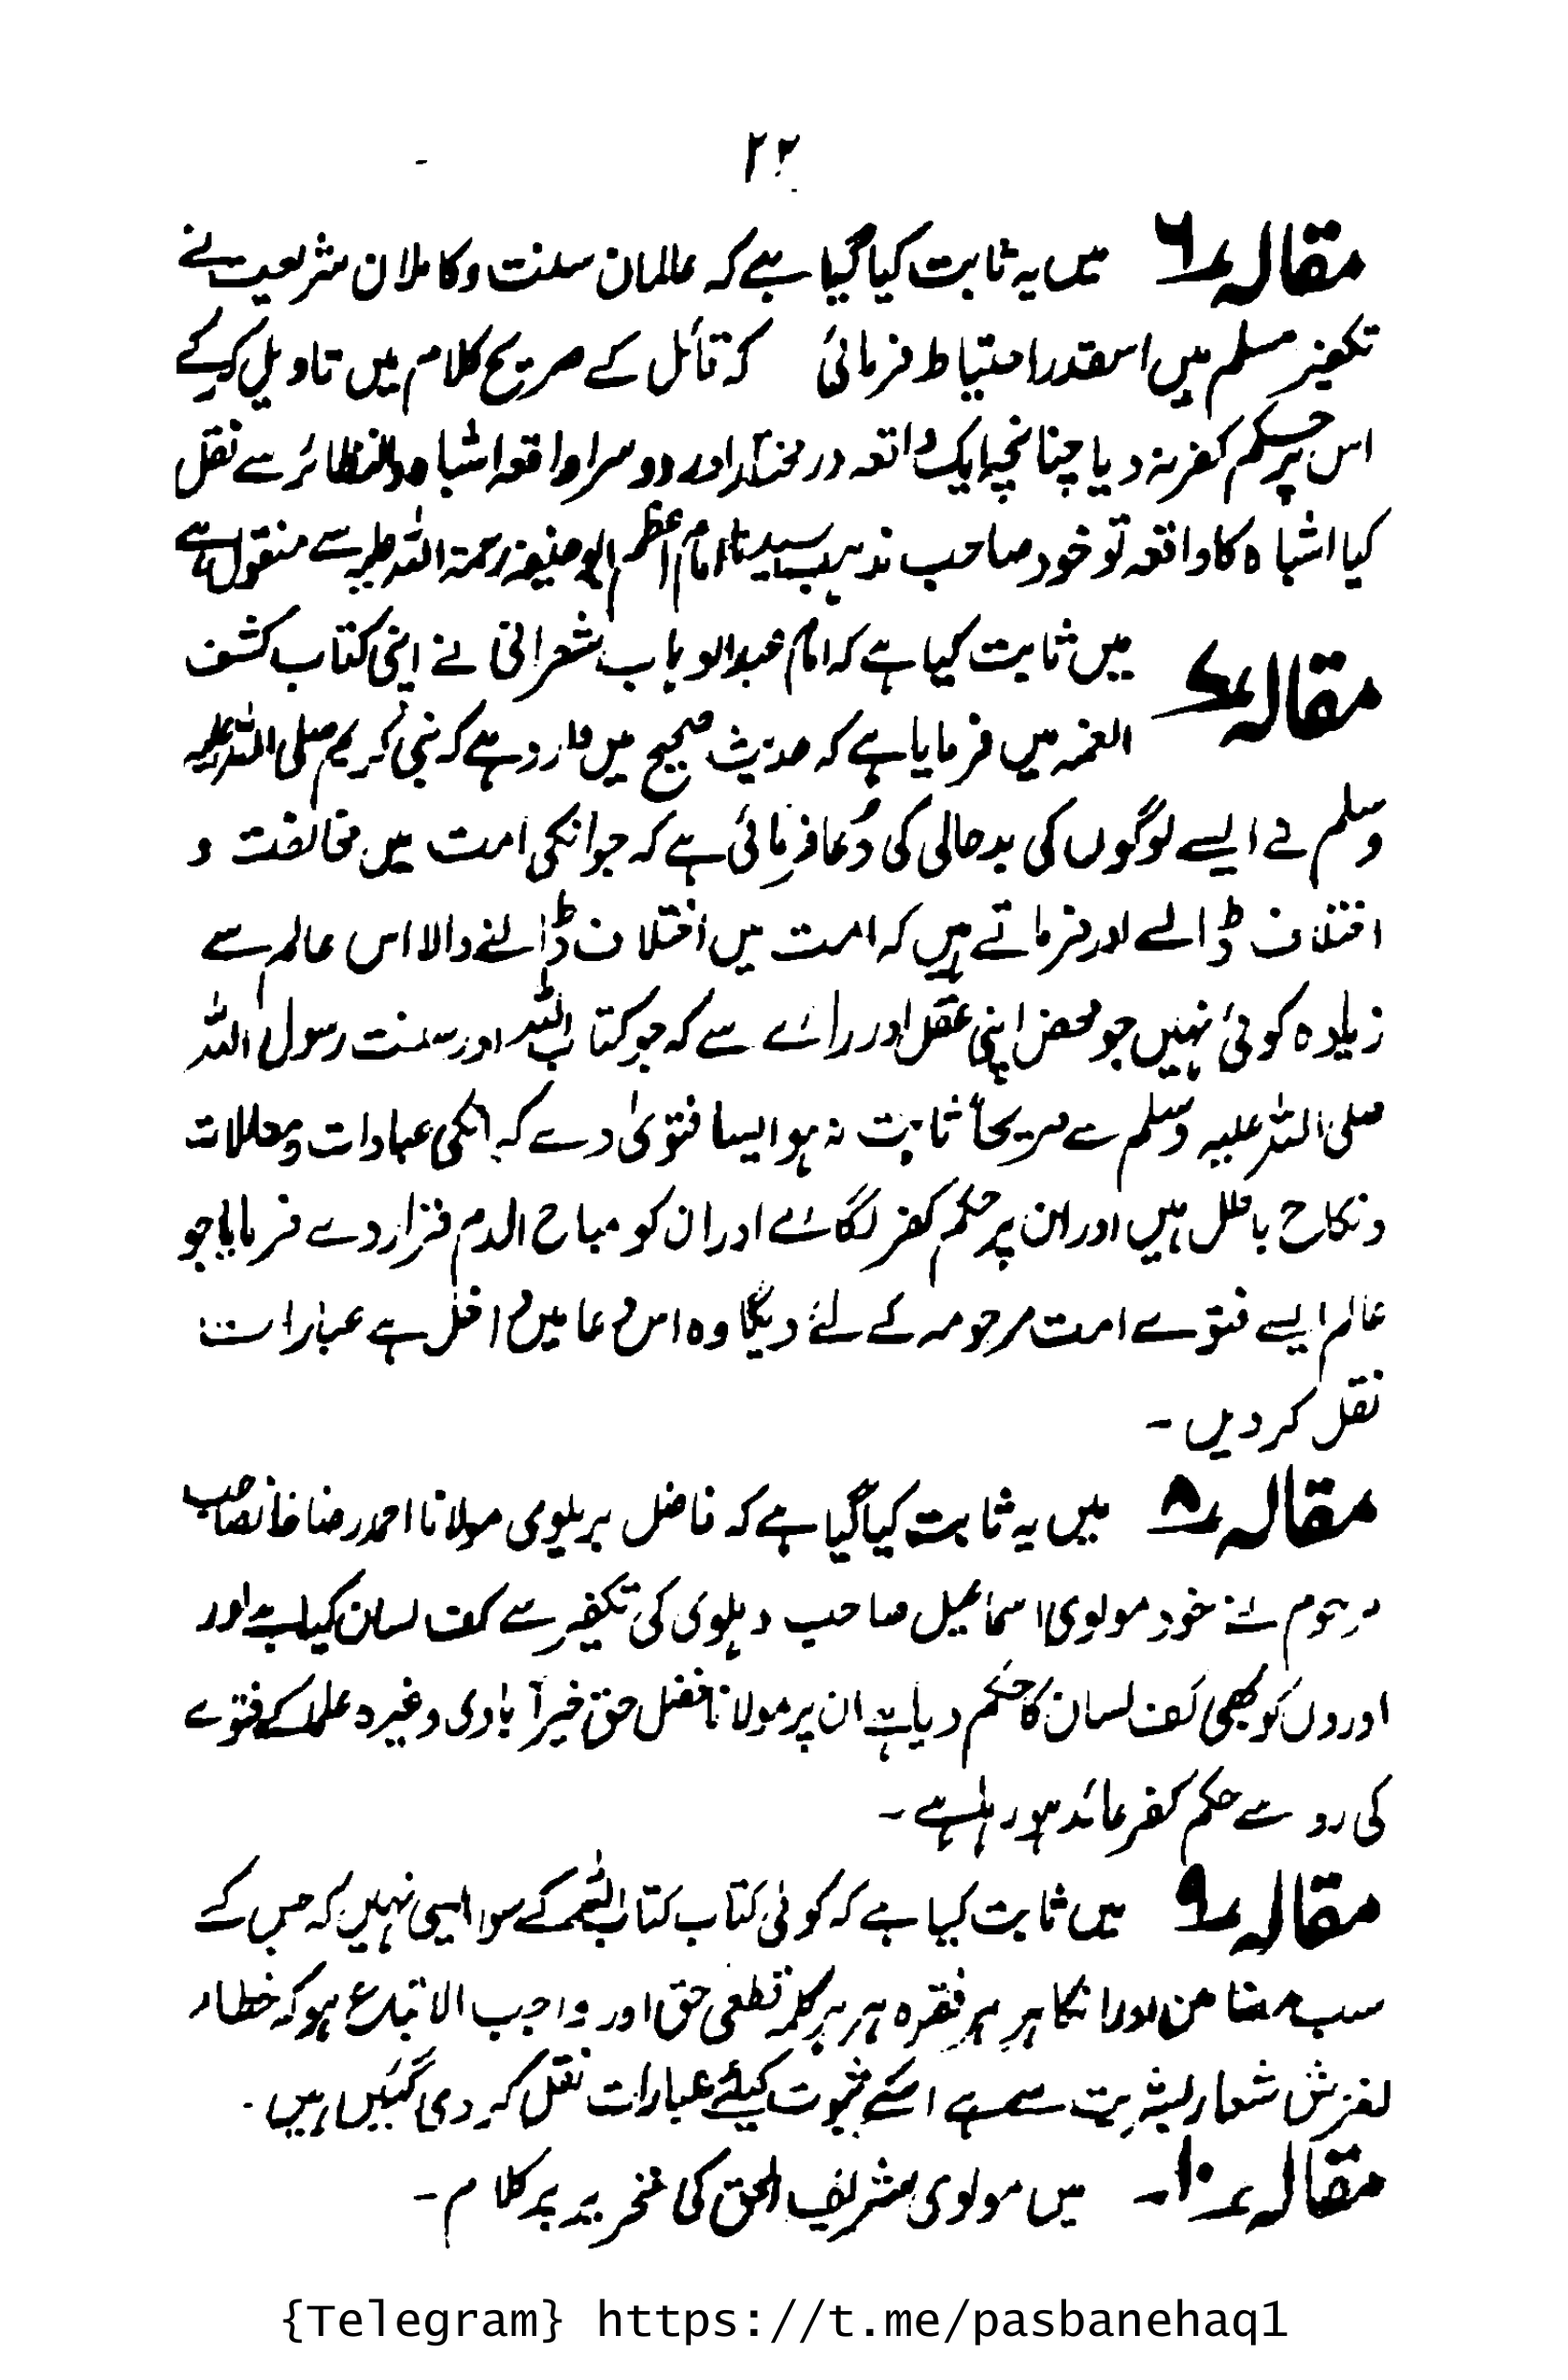 ۲۲
مقالہ ۶ میں یہ ثابت کیا گیا ہے کہ عالمان سنت و کاملان شریعت نے
تکفیر مسلم میں اسقدر احتیاط فرمائی کہ قائل کے صریح کلام میں تاویل کرکے
اس پر حکم کفر نہ دیا چنانچہ ایک واقعہ در مختار اور دوسرا واقعہ اشباہ والنظائر سے نقل
کیا اشباہ کا واقعہ تو خود صاحب مذہب سیدنا امام اعظم ابو حنیفہ رحمۃ اللہ علیہ سے منقول ہے
مقالہ ۷ میں ثابت کیا ہے کہ امام عبدالوہاب شعرانی نے اپنی کتاب کشف
الغمہ میں فرمایا ہے کہ حدیث صحیح میں وارد ہے کہ نبی کریم صلی اللہ علیہ
وسلم نے ایسے لوگوں کی بدحالی کی دُعا فرمائی ہے کہ جو انکی امت میں مخالفت و
اختلاف ڈالے اور فرماتے ہیں کہ امت میں اختلاف ڈالنے والا اس عالم سے
زیادہ کوئی نہیں جو محض اپنی عقل اور رائے سے کہ جو کتاب اللہ اور سنت رسول اللہ
صلی اللہ علیہ وسلم سے صریحاً ثابت نہ ہو ایسا فتویٰ دے کہ انکی عبادات و معاملات
و نکاح باطل ہیں اور ان پر حکم کفر لگائے اور ان کو مباح الدم قرار دے فرمایا جو
عالم ایسے فتوے امت مرحومہ کے لئے دیگا وہ اس دعا میں داخل ہے عبارات
نقل کر دیں ۔
مقالہ ۸ میں یہ ثابت کیا گیا ہے کہ فاضل بریلوی مولانا احمد رضا خانصاحب
مرحوم نے خود مولوی اسماعیل صاحب دہلوی کی تکفیر سے کف لسان کیا ہے اور
اوروں کو بھی کف لسان کا حکم دیا ہے ان پر مولانا فضل حق خیرآبادی وغیرہ علما کے فتوے
کی رو سے حکم کفر عائد ہو رہا ہے ۔
مقالہ ۹ میں ثابت کیا ہے کہ کوئی کتاب کتاب اللہ کے سوا ایسی نہیں کہ جس کے
سب مضامین اور انکا ہر ہر فقرہ ہر ہر کلمہ قطعی حق اور واجب الاتباع ہو کہ خطاء
لغزش شعار بشریت سے ہے اسکے ثبوت کیلئے عبارات نقل کر دی گئیں ہیں ۔
مقالہ ۱۰ میں مولوی شریف الحق کی تحریر پر کلام ۔
{Telegram} https://t.me/pasbanehaq1